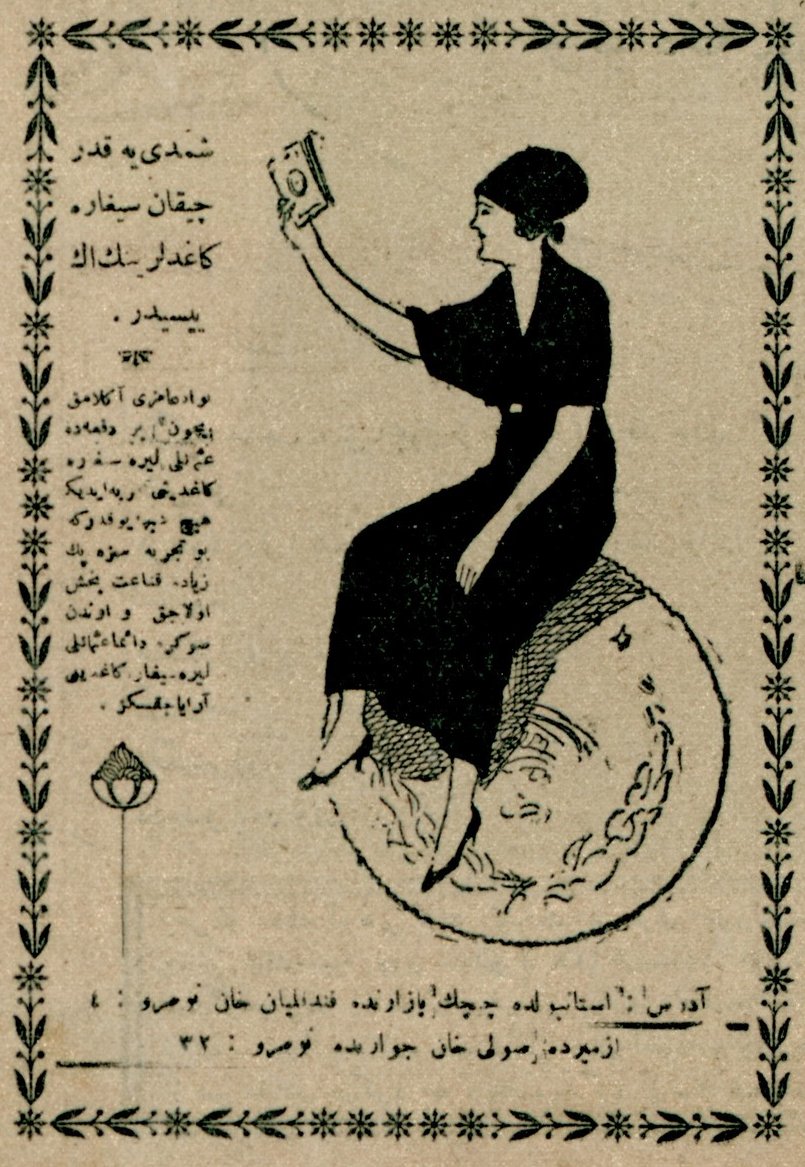 شمدی‌یه قدر
چیقان سیغاره
كاغدلرینك اك
ییسیدر .
بو ادعامزی آكلامق
ایچون بر دفعه‌ده
عثمانلی لیره سیغاره
كاغدینی
هیچ شبهه یوقدركه
بو تجربه سزه پك
زیاده قناعت بخش
اولاجق و اوندن
سوكره دائما عثمانلی
لیره سیغاره كاغدینی
آرایاجقسكز .
آدرس : استانبولده چیچك بازارنده فندقلیان خان نومرو : ٤
ازمیرده صولی خان جوارنده نومرو : ٣٢